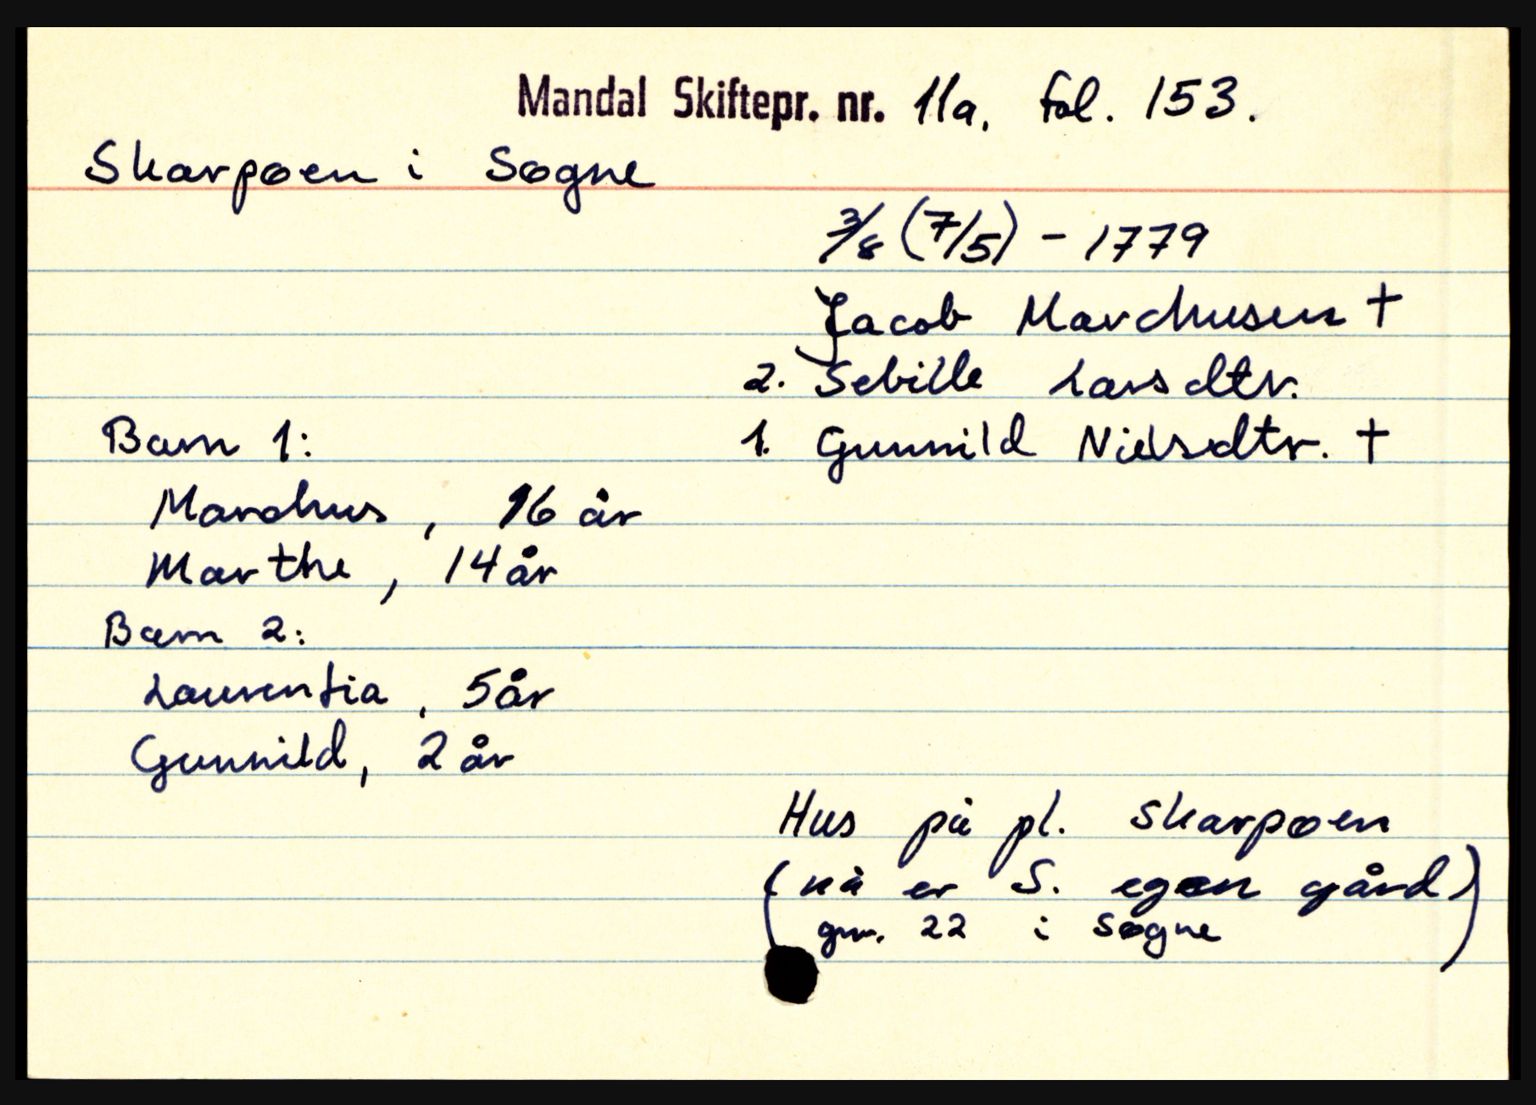 Mandal Skiftepr. nr. 11a, fol. 153.
Skarpøen i Søgne
3/8 (7/5) - 1779
Jacob Marchusen †
2. Sebille Larsdtr.
1. Gunnild Nielsdtr. †
Barn 1:
Marchus, 16 år
Marthe, 14 år
Barn 2:
Laurentia, 5 år
Gunnild, 2 år
Hus på pl. Skarpøen
(nå er S. egen gård)
gnr. 22 i Søgne